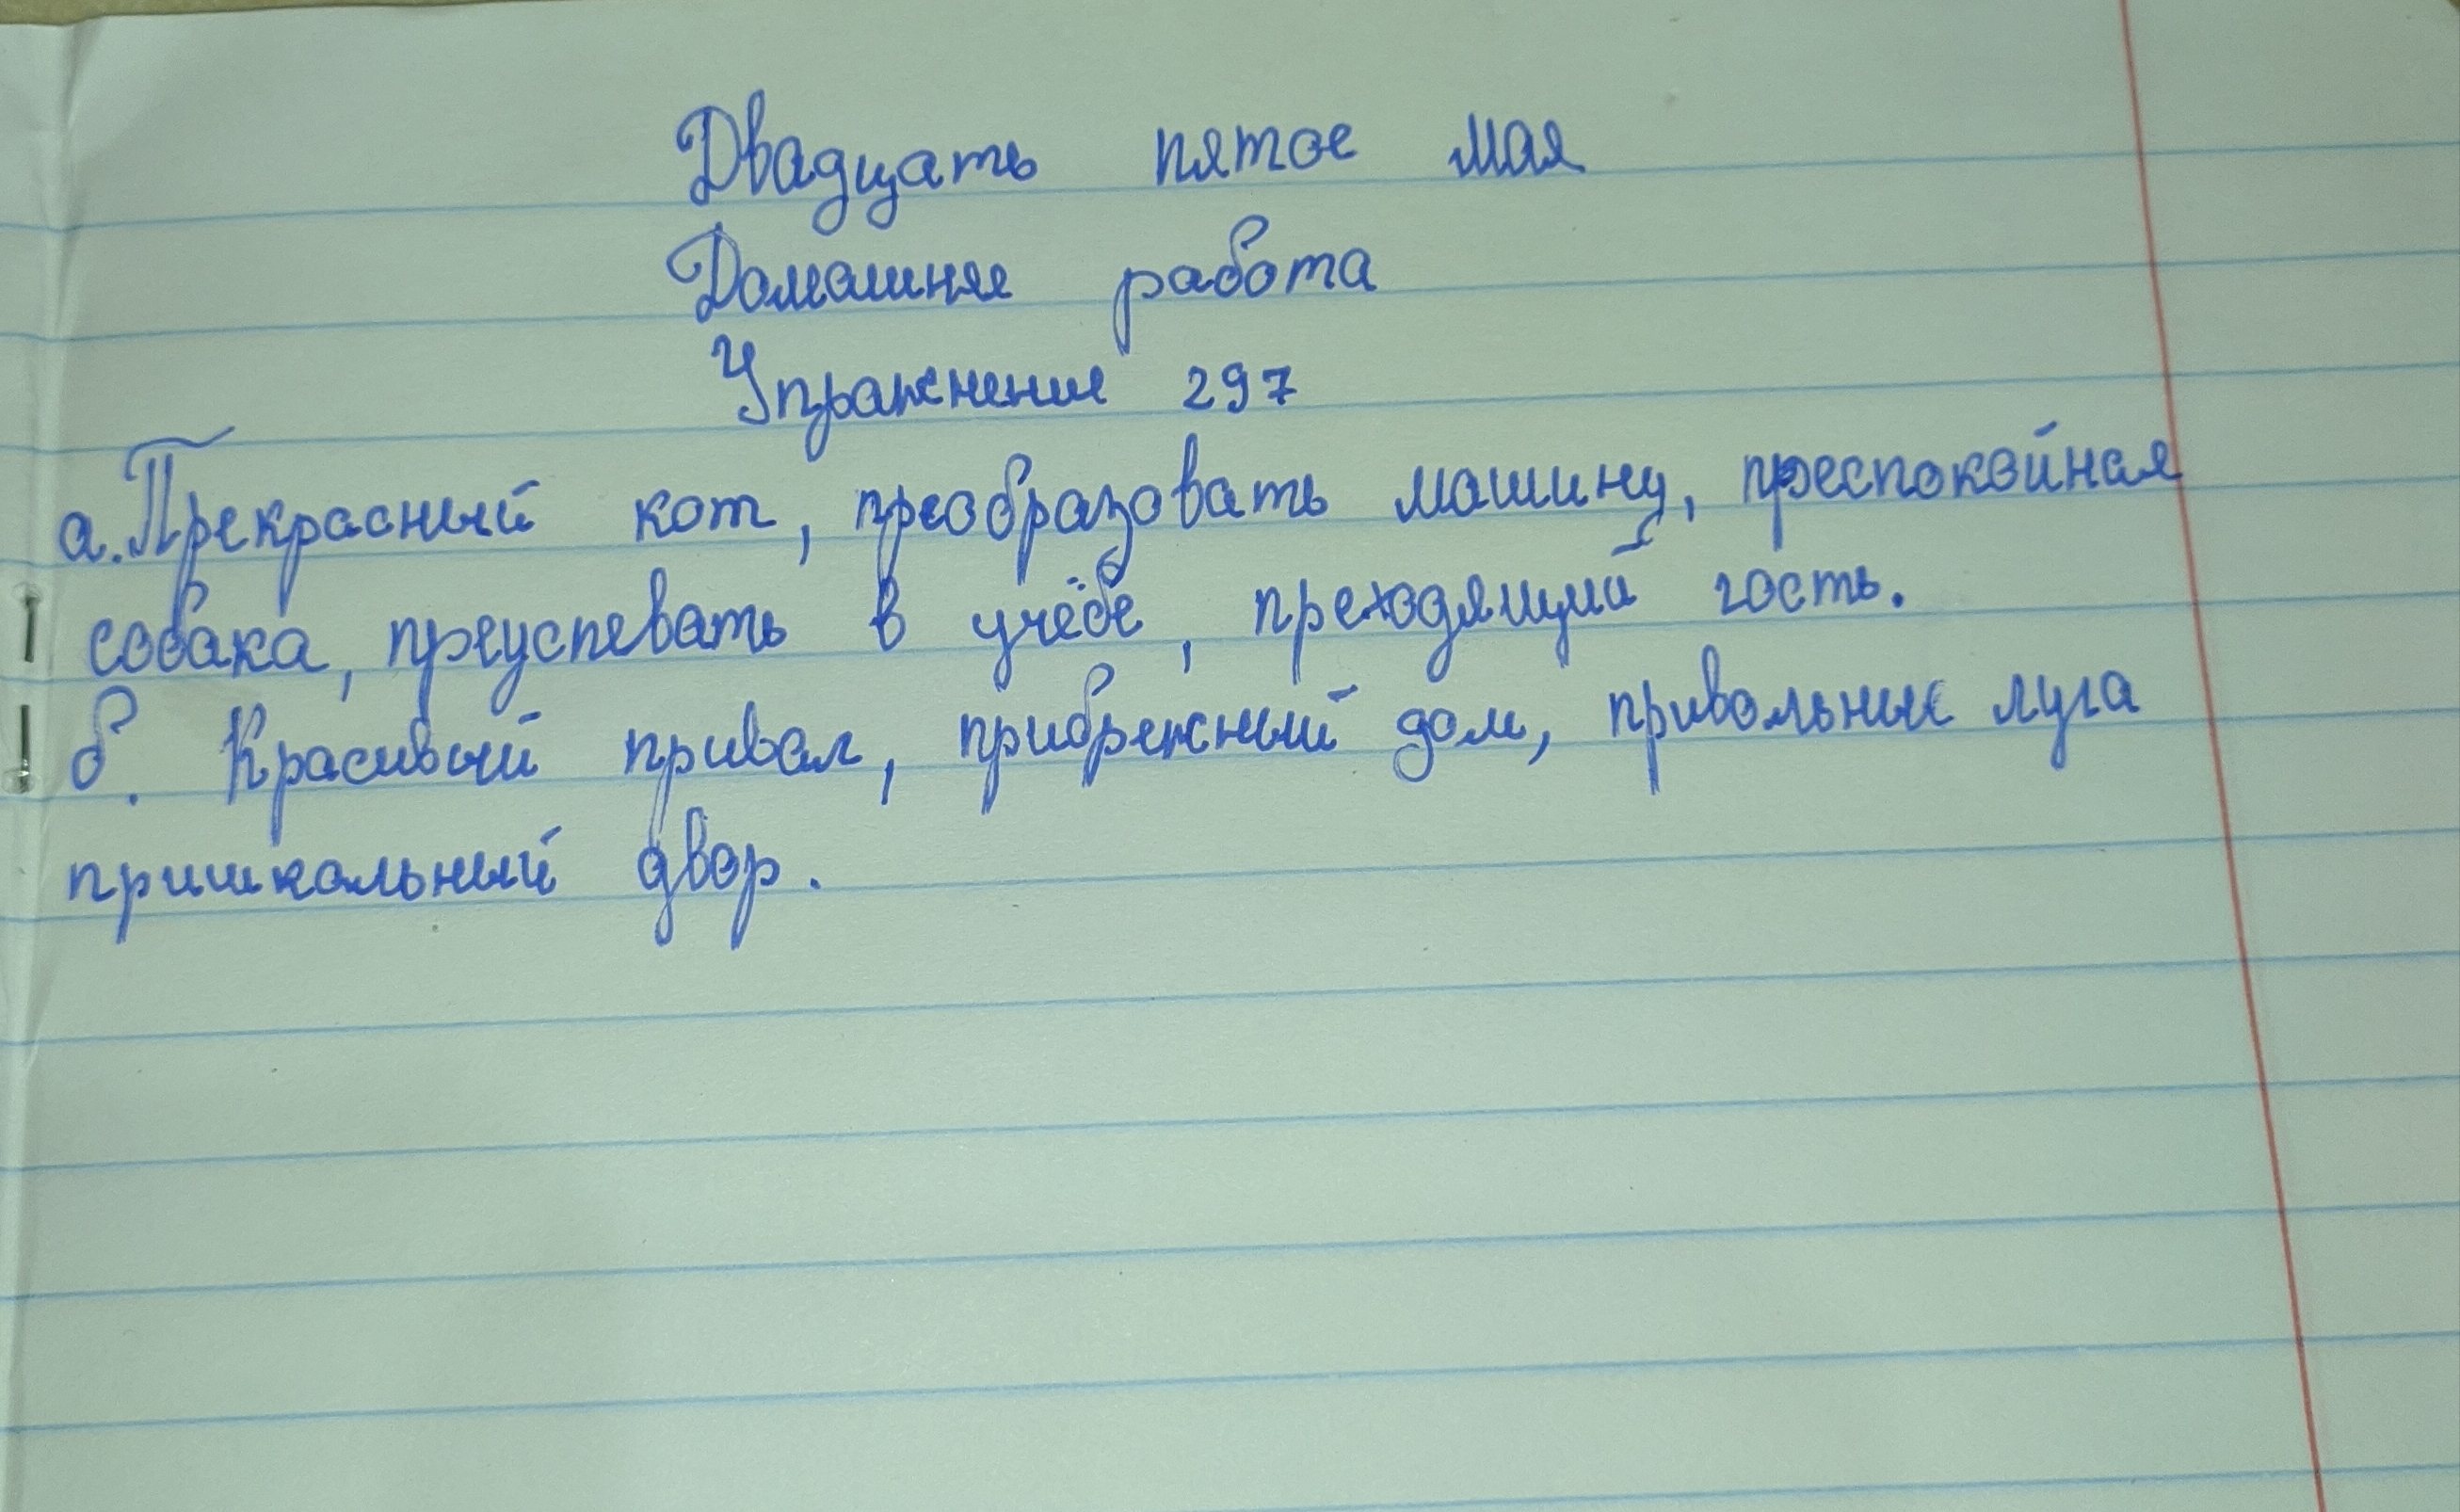 Двадцать пятое мая
Домашняе работа
Упражнение 297
а. Прекрасный кот, преобразовать машину, преспокойная
собака, преуспевать в учёбе, преходящий гость.
б. Красивый привал, прибрежный дом, привольные луга
пришкольный двор.